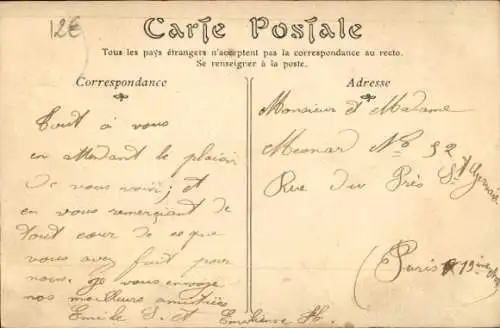 12€
Carte Postale
Tous les pays étrangers n'acceptent pas la correspondance au recto.
Se renseigner à la poste.
Correspondance
Tout à vous
en attendant le plaisir
de vous voir; et
en vous remerçiant de
tout cœur de ce que
vous avez fait pour
nous. je vous envoye
nos meilleurs amitiées
Emile S. et Emilienne H.
Adresse
Monsieur et Madame
Mesnar No 52
Rue du Prés St Gervais
(Paris 19ème